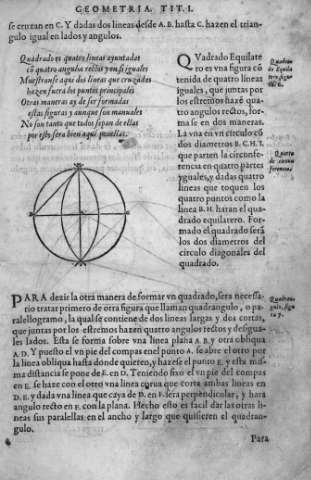 GEOMETRIA. TIT. I.
se cruzan en C. Y dadas dos lineas desde A. B. hasta C. hazen el trian-
gulo igual en lados y angulos.
Quadrado es quatro lineas ayuntadas
cõ quatro angulos rectos yguales
Muestranse aqui dos lineas que cruzadas
hazen fuera los puntos principales
Otras maneras ay de ser formadas
estas figuras y aunque son manuales
No son tanto que todos sepan de ellas
por esso sera bien aqui ponellas.
QVadrado Equilate
ro es vna figura cõ
tenida de quatro lineas
iguales, que juntas por
los estremos hazẽ qua-
tro angulos rectos, for-
mase en dos maneras.
La vna en vn circulo cõ
dos diametros B. C. H. I.
que parten la circonfe-
rencia en quatro partes
yguales, y dadas quatro
lineas que toquen los
quatro puntos como la
linea B. H. haran el qua-
drado equilatero. For-
mado el quadrado serã
los dos diametros del
circulo diagonales del
quadrado.
Quadrado
de Equila
tero figu-
ra 6.
Quarta
de circun
ferencia
PARA dezir la otra manera de formar vn quadrado, sera necessa-
rio tratar primero de otra figura que llaman quadrangulo, o pa-
ralellogramo, la qual se contiene de dos lineas largas y dos cortas,
que juntas por los estremos hazen quatro angulos rectos y desigua-
les lados. Esta se forma sobre vna linea plana A. B. y otra obliqua
A. D. Y puesto el vn pie del compas en el punto A. se abre el otro por
la linea obliqua hasta donde quieren, y hazese el punto E. y esta mis-
ma distancia se pone de E. en D. Teniendo fixo el vn pie del compas
en E. se haze con el otro vna linea corua que corta ambas lineas en
D. F. y dada vna linea que caya de D. en F. sera perpendicular, y hara
angulo recto en F. con la plana. Hecho esto es facil dar las otras li-
neas sus paralellas en el ancho y largo que quisieren el quadran-
gulo.
Quadran-
gulo, figu
ra 7.
Para